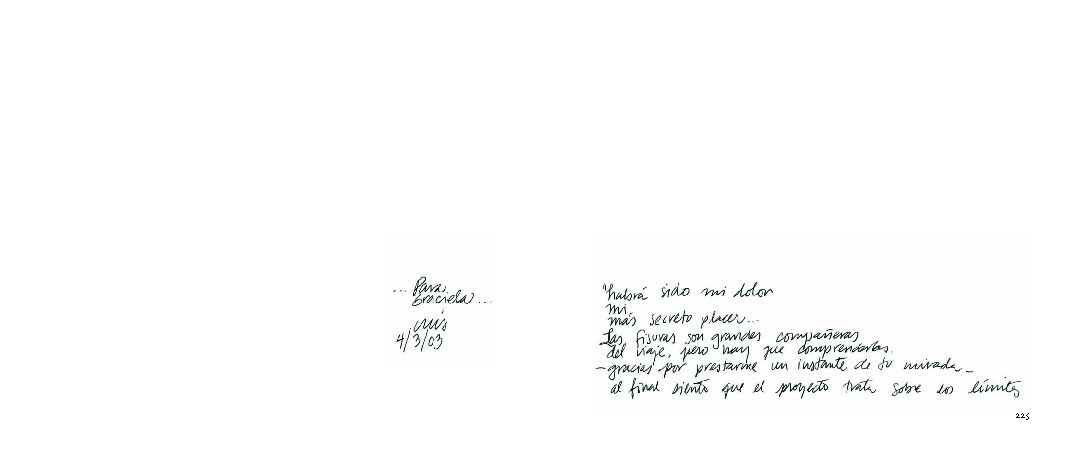 ... Para
Graciela...
4/3/03
"habrá sido mi dolor
mi
más secreto placer...
Las figuras son grandes compañeras
del viaje, pero hay que comprenderlas.
- gracias por prestarme un instante de tu mirada -
al final siento que el proyecto trata sobre los límites
225